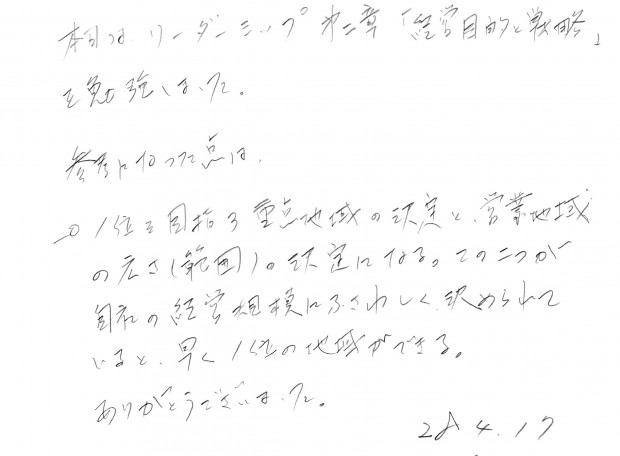 本日は、リーダーシップ 第二章「経営目的と戦略」
を勉強しました。
参考になった点は、
→① 1位を目指す重点地域の決定と、営業地域
の広さ(範囲)の決定になる。この二つが
自社の経営規模にふさわしく決められて
いると、早く1位の地域ができる。
ありがとうございました。
28.4.17